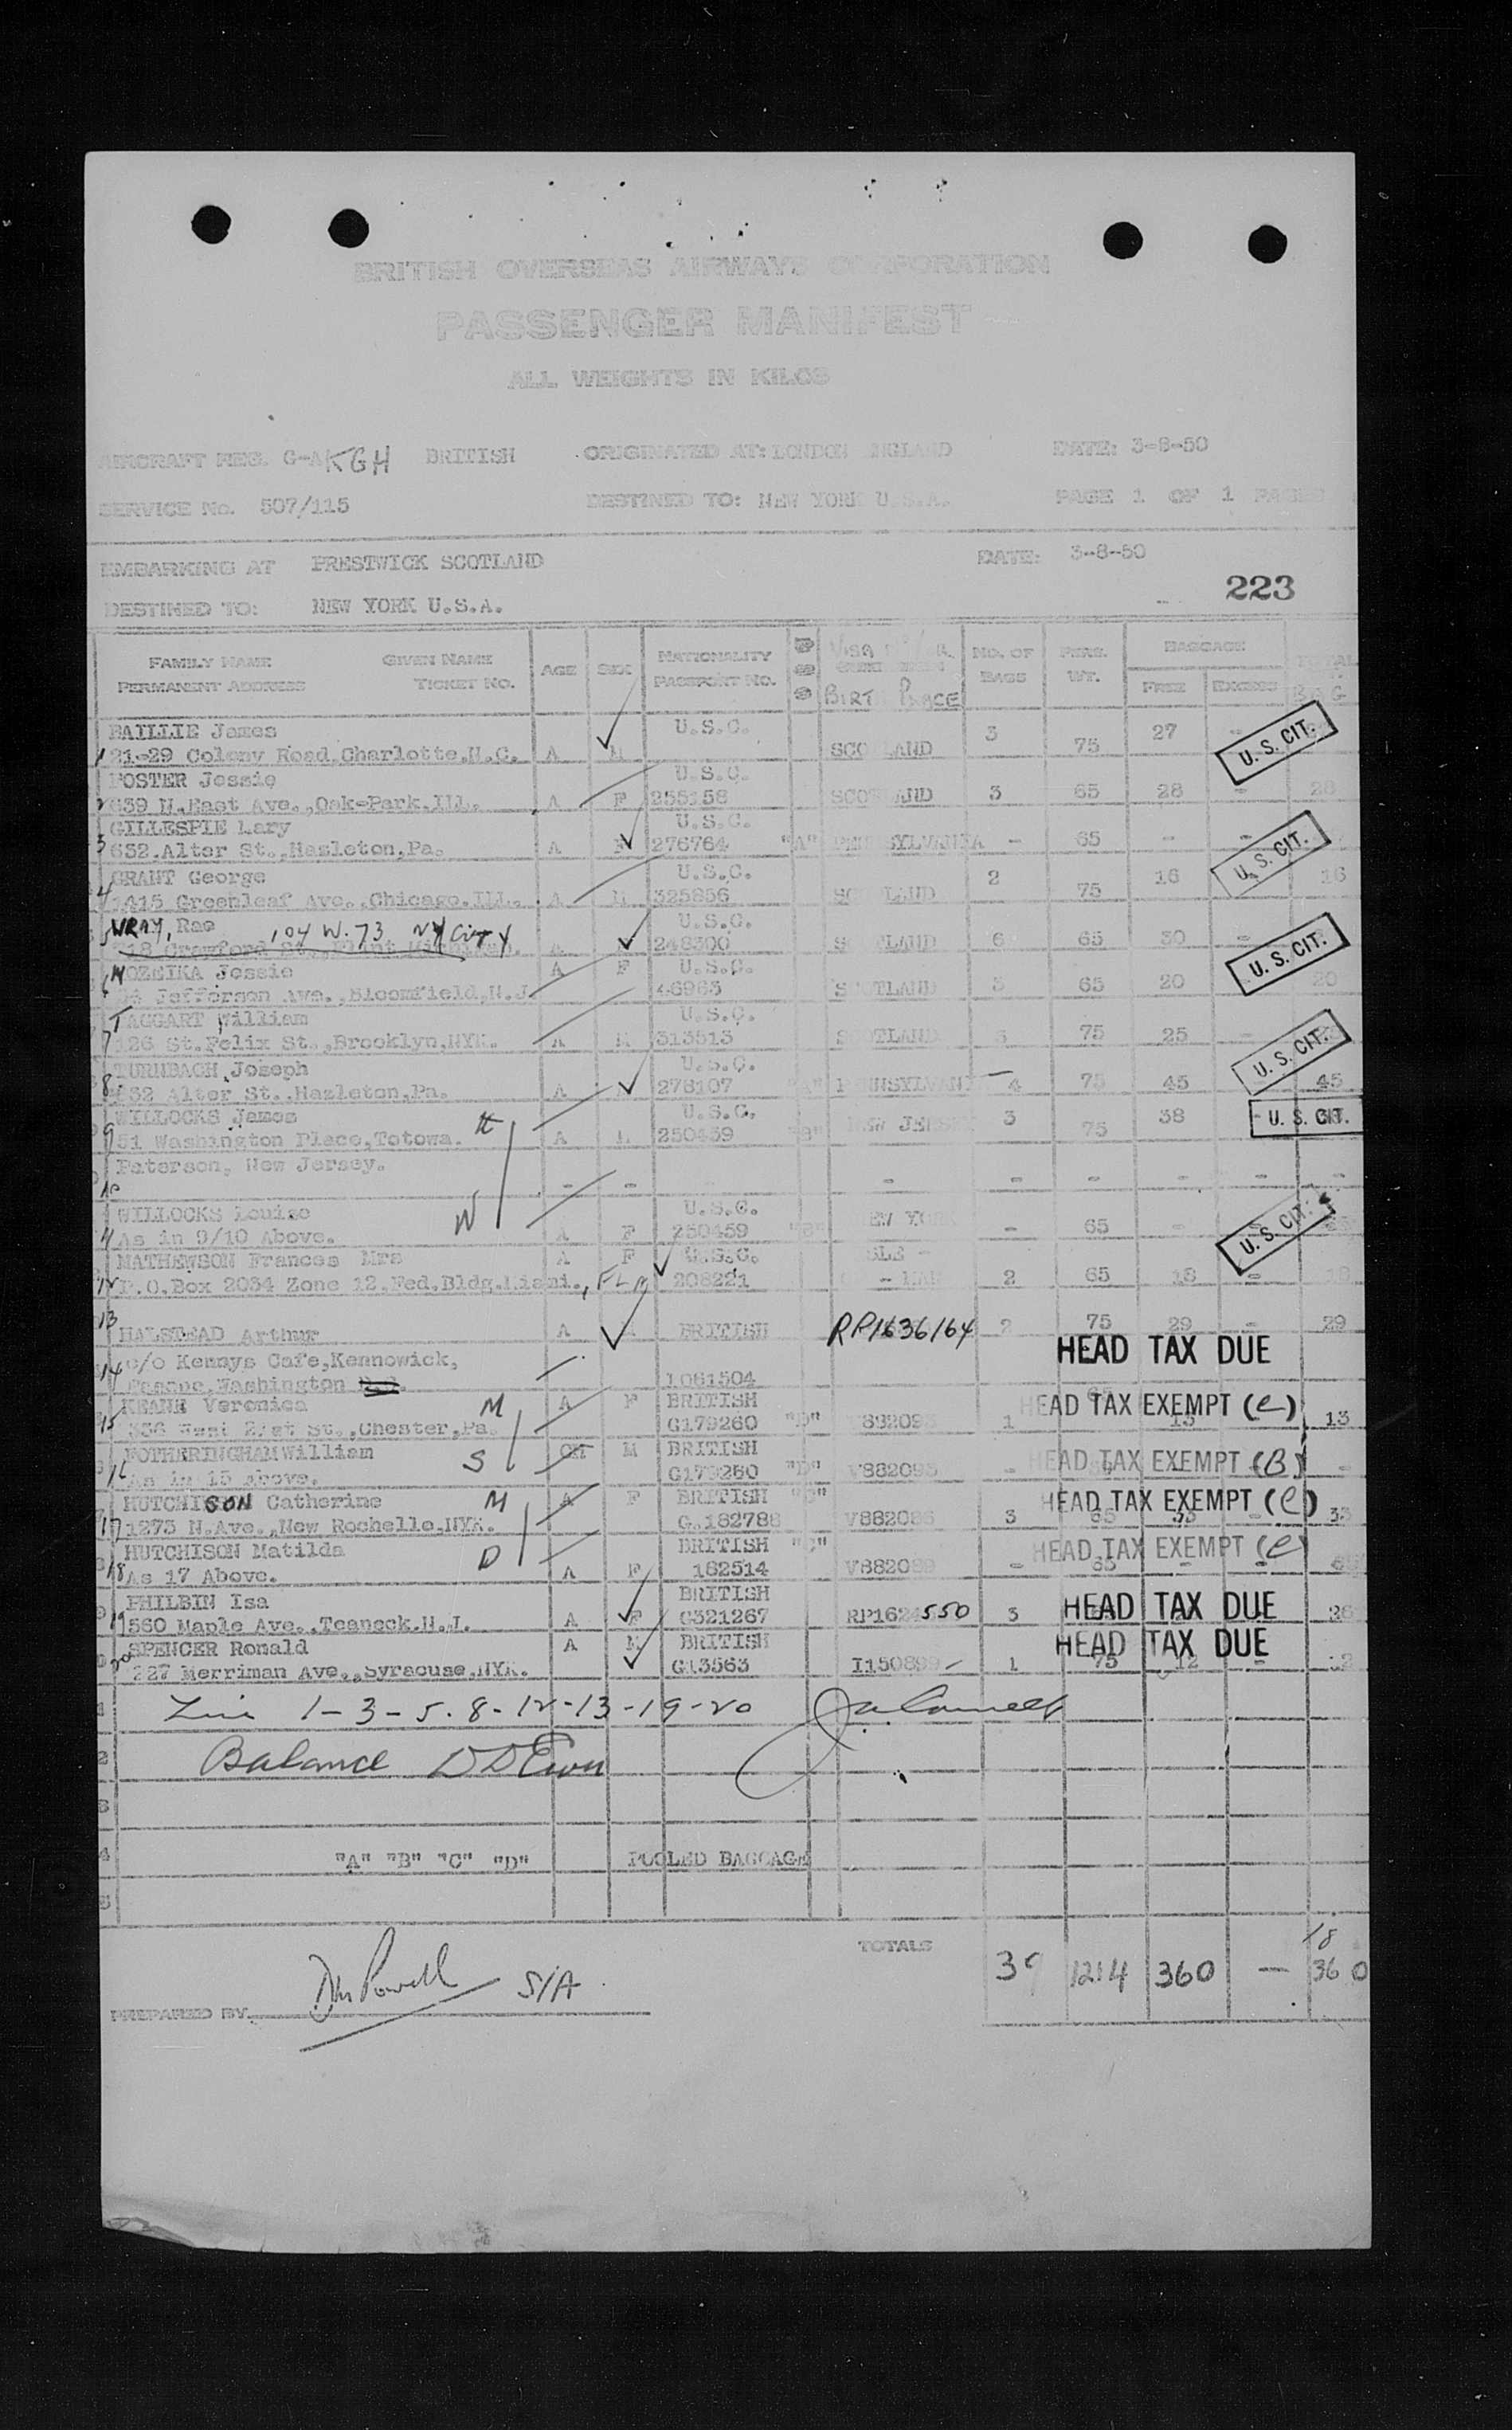 BRITISH OVERSEAS AIRWAYS CORPORATION
PASSENGER MANIFEST
ALL WEIGHTS IN KILOS
AIRCRAFT REG. G-AKGH BRITISH ORIGINATED AT: LONDON ENGLAND DATE: 3-8-50
SERVICE No. 507/115 DESTINED TO: NEW YORK U.S.A. PAGE 1 OF 1 PAGES
EMBARKING AT PRESTWICK SCOTLAND DATE: 3-8-50
223
DESTINED TO: NEW YORK U.S.A.
FAMILY NAME GIVEN NAME AGE SEX NATIONALITY NO. OF PERS. BAGGAGE TOTAL
PERMANENT ADDRESS TICKET NO. PASSPORT NO. BIRTH PLACE BAGS WT. FREE EXCESS
BAILLIE James U.S.C. 3 27 -
1 21-29 Colony Road,Charlotte,N.C. A M SCOTLAND 75 U.S. CIT.
FOSTER Jessie U.S.C.
2 639 N.East Ave.,Oak-Park.ILL. A F 255158 SCOTLAND 3 65 28 - 28
GILLESPIE Mary U.S.C.
3 632.Alter St.,Hazleton,Pa. A F 276764 "A" PENNSYLVANIA - 65 - - U.S. CIT.
GRANT George U.S.C. 2 16 16
4 1415 Greenleaf Ave.,Chicago.ILL. A M 325856 SCOTLAND 75
WRAY, Rae 104 W. 73 NY City U.S.C.
5 Crawford St., A 248300 SCOTLAND 6 65 30 - U.S. CIT.
MOZEIKA Jessie A F U.S.C.
6 Jefferson Ave.,Bloomfield,N.J. 46963 SCOTLAND 3 65 20 20
TAGGART William U.S.C.
7 126 St.Felix St.,Brooklyn,NYK. A M 313513 SCOTLAND 75 25 -
TURNBACH Joseph U.S.C. U.S. CIT.
8 632 Alter St.,Hazleton,Pa. A M 276107 PENNSYLVANIA 4 75 45 45
WILLOCKS James H U.S.C. 3 38 - U.S. CIT.
9 51 Washington Place,Totowa. A M 250459 "B" NEW JERSEY 75
Paterson, New Jersey.
10 - - - - - - - -
WILLOCKS Louise W U.S.C. NEW YORK
11 As in 9/10 Above. A F 250459 "B" - 65 - U.S. CIT.
MATHEWSON Frances Mrs A F U.S.C. ISLE -
12 P.O.Box 2034 Zone 12,Fed,Bldg.Miami., FLA 208221 OF - MAN 2 65 18 - 18
13 HALSTEAD Arthur A BRITISH RP1636164 2 75 29 - 29
14 c/o Kennys Cafe,Kennowick, HEAD TAX DUE
Washington 1061504
KEANE Veronica M A F BRITISH HEAD TAX EXEMPT (e)
15 336 West 21st St.,Chester,Pa. G179260 "D" V882095 1 13 13
FOTHERINGHAM William S CH M BRITISH HEAD TAX EXEMPT (B)
16 As in 15 above. G179260 "D" V882095 - -
HUTCHISON Catherine M A F BRITISH "C" HEAD TAX EXEMPT (e)
17 1273 N.Ave.,New Rochelle,NYK. G.182788 3 65 33 - 33
HUTCHISON Matilda D BRITISH "C" HEAD TAX EXEMPT (e)
18 As 17 Above. A F 182514 - 65 - -
PHILBIN Isa BRITISH
19 560 Maple Ave.,Teaneck.N.J. A F G321267 RP1624550 3 HEAD TAX DUE 26
SPENCER Ronald A M BRITISH HEAD TAX DUE
20 227 Merriman Ave.,Syracuse,NYK. G13563 1 75 12 - 12
Line 1-3-5.8-12-13-19-20
Balance
3
4 "A" "B" "C" "D" POOLED BAGGAGE
5
TOTALS 39 1214 360 — 360
18
PREPARED BY S/A